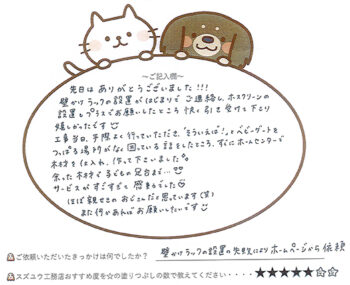 ～ご記入欄～
先日は ありがとうございました!!!
壁かけラックの設置が はじまりで ご連絡し、ホスクリーンの
設置もプラスでお願いしたところ 快く引き受けて下さり
嬉しかったです
工事当日、手際よく行っていただき、「そういえば!」とベビーゲートを
つっぱる場所がなく困っている話をしたところ、すぐにホームセンターで
木材を仕入れ、作って下さいました。
余った木材で子どもの足台まで…
サービスがすごすぎて 感動でした
ほぼ親せきのおじさんだと思っています(笑)
また何かあればお願いしたいです
ご依頼いただいたきっかけは何でしたか? 壁かけラックの設置の失敗によりホームページから依頼
スズユウ工務店おすすめ度を☆の塗りつぶしの数で教えてください・・・・★★★★★☆☆